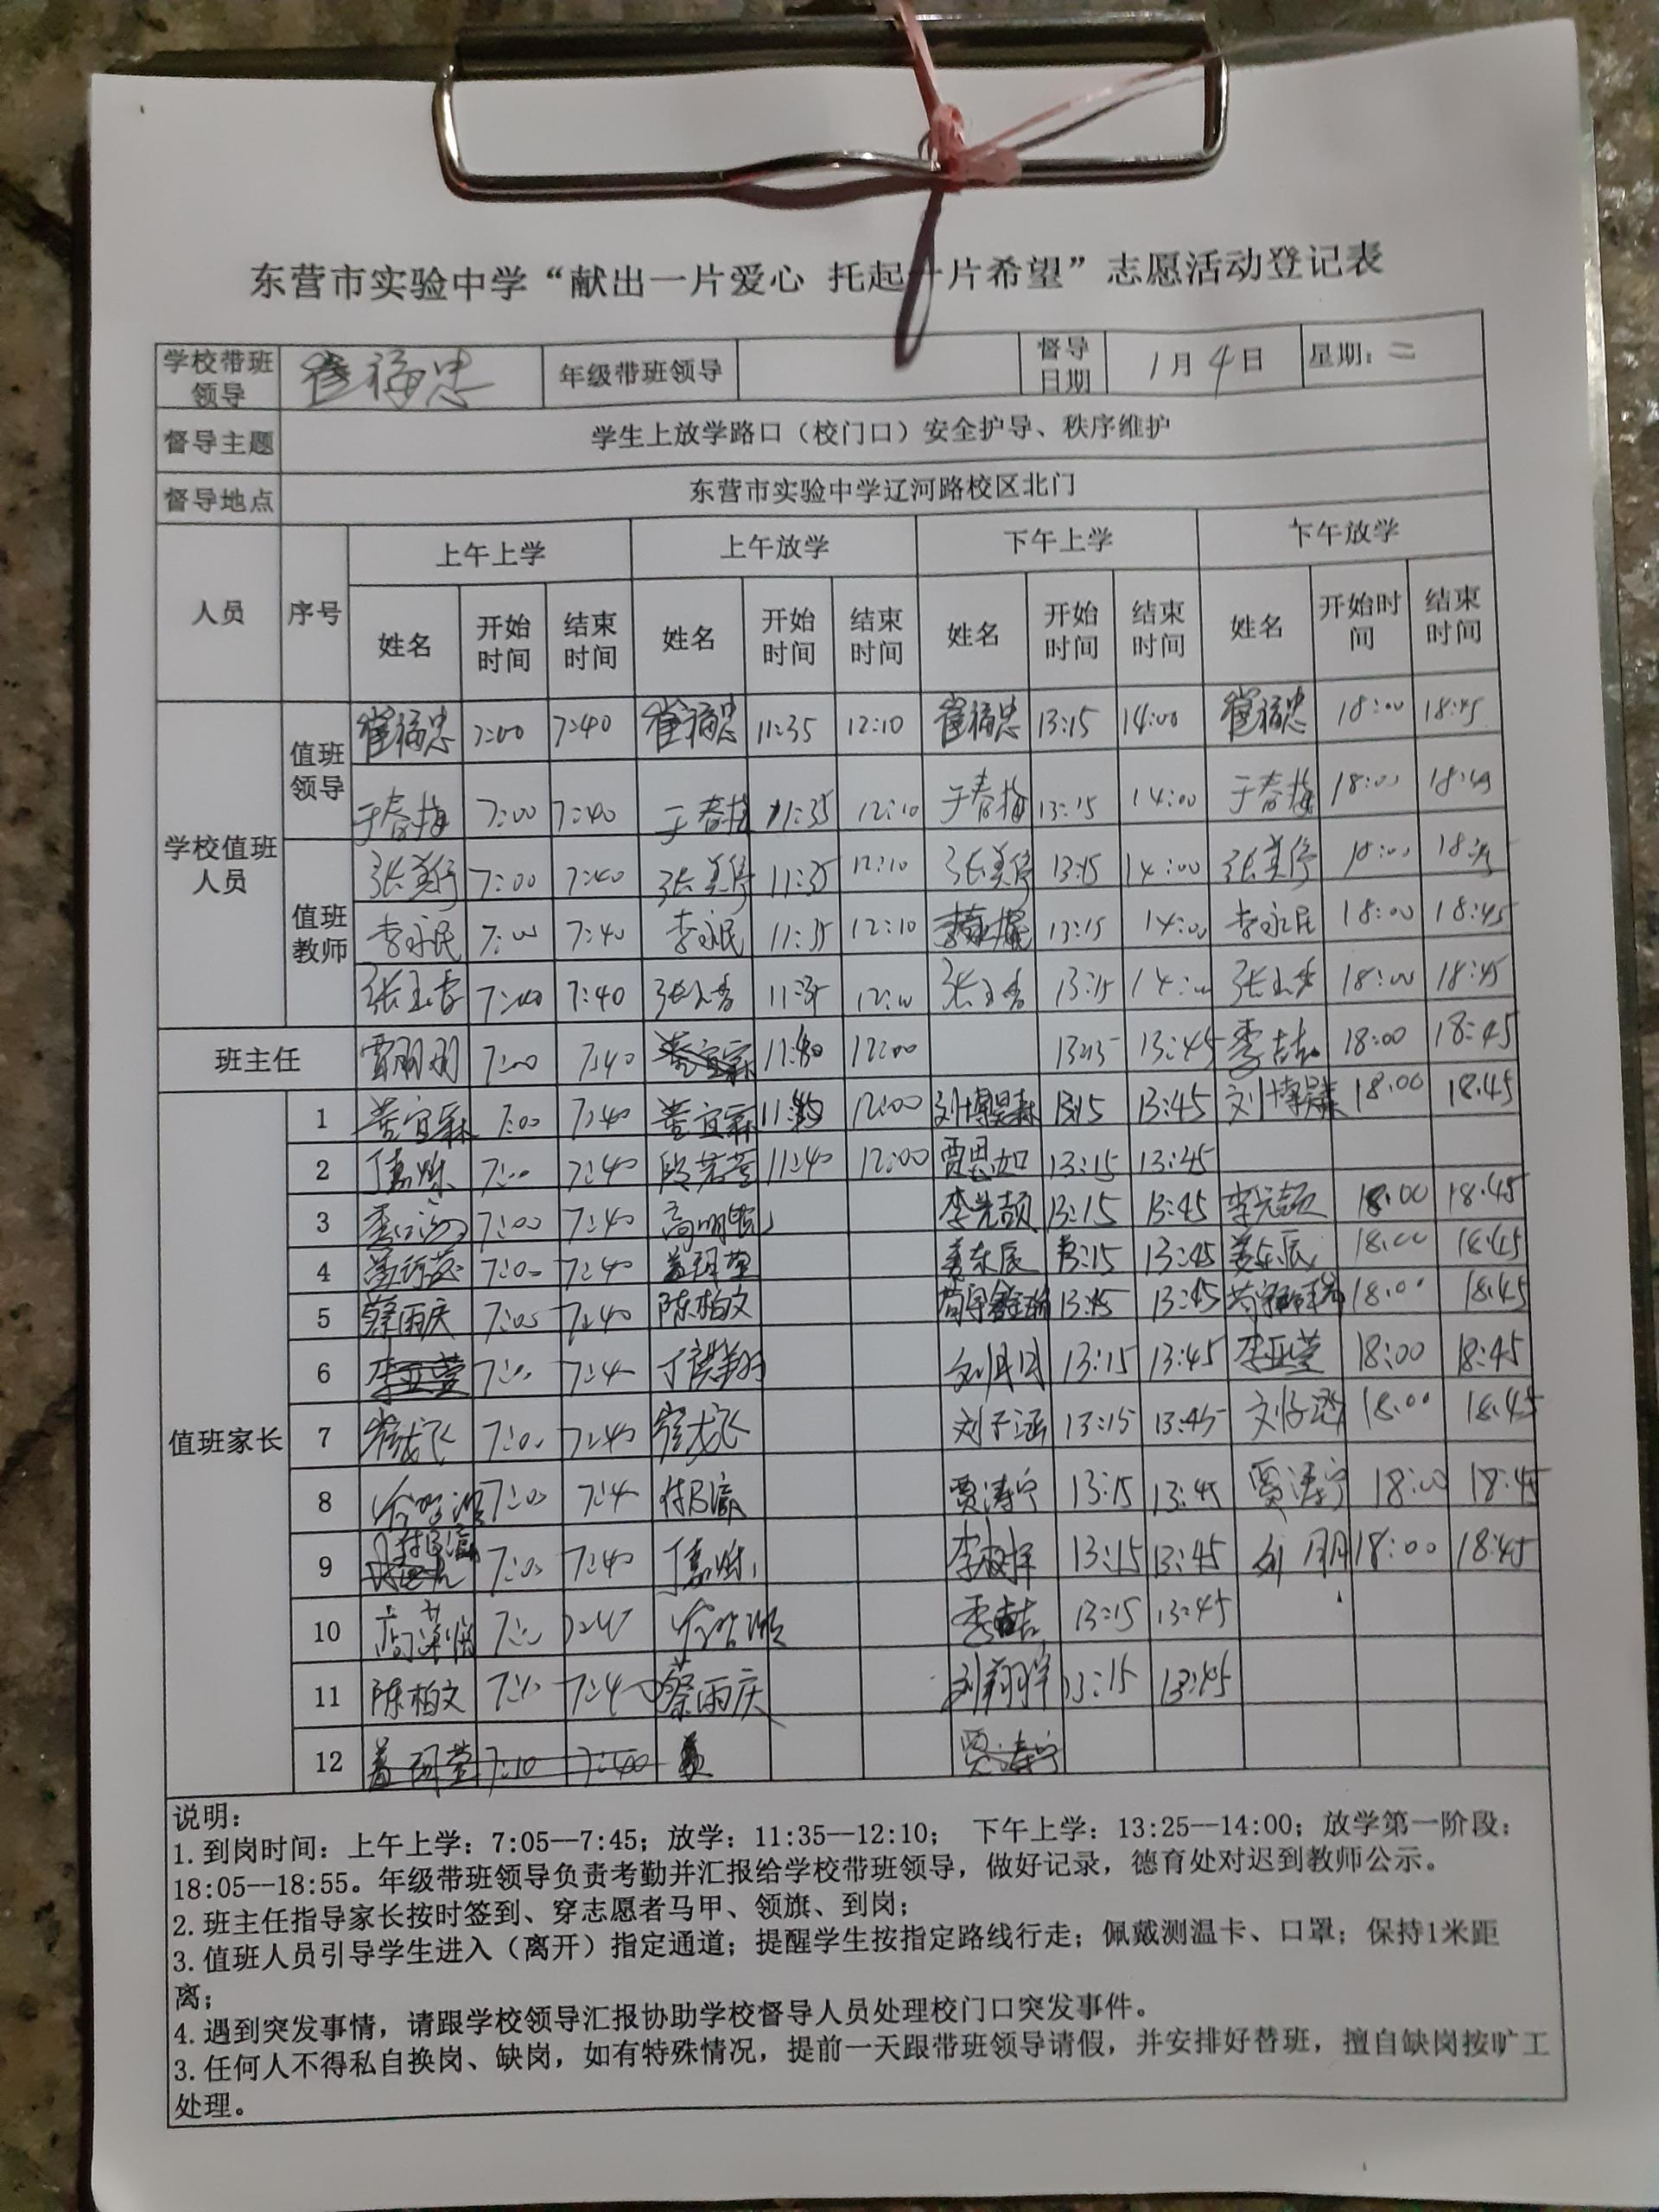 东营市实验中学“献出一片爱心 托起一片希望”志愿活动登记表
学校带班领导 崔福忠 年级带班领导 督导日期 1月4日 星期：二
督导主题 学生上放学路口（校门口）安全护导、秩序维护
督导地点 东营市实验中学辽河路校区北门
人员 序号 上午上学 上午放学 下午上学 下午放学
姓名 开始时间 结束时间 姓名 开始时间 结束时间 姓名 开始时间 结束时间 姓名 开始时间 结束时间
学校值班人员 值班领导 崔福忠 7:00 7:40 崔福忠 11:35 12:10 崔福忠 13:15 14:00 崔福忠 18:00 18:45
于春梅 7:00 7:40 于春梅 11:35 12:10 于春梅 13:15 14:00 于春梅 18:00
值班教师 张美婷 7:00 7:40 张美婷 11:35 12:10 张美婷 13:15 14:00 张美婷 18:00
李永民 7:00 7:40 李永民 11:35 12:10 13:15 14:00 李永民 18:00 18:45
张玉香 7:00 7:40 张玉香 11:35 张玉香 13:15 14:00 张玉香 18:00 18:45
班主任 7:00 7:40 12:00 13:45 李喆 18:00 18:45
值班家长 1 7:00 7:40 12:00 13:15 13:45 18:00 18:45
2 7:00 7:40 11:40 12:00 贾思如 13:15 13:45
3 7:00 7:40 李先颉 13:15 13:45 李先颉 18:00 18:45
4 7:00 7:40 盖珂莹 姜东辰 13:15 13:45 姜东辰 18:00 18:45
5 蔡雨庆 7:05 7:40 陈柏文 13:15 13:45 18:00 18:45
6 李亚萱 7:00 7:40 13:15 13:45 李亚萱 18:00 18:45
7 崔龙飞 7:00 7:40 崔龙飞 刘子涵 13:15 13:45 18:00 18:45
8 7:00 7:40 贾涛宁 13:15 13:45 贾涛宁 18:00 18:45
9 7:00 7:40 13:15 13:45 18:00 18:45
10 李喆 13:15 13:45
11 陈柏文 蔡雨庆 刘翔宇 13:15 13:45
12 盖珂莹 7:10 7:40 贾涛宁
说明：
1.到岗时间：上午上学：7:05--7:45；放学：11:35--12:10； 下午上学：13:25--14:00；放学第一阶段：
18:05--18:55。年级带班领导负责考勤并汇报给学校带班领导，做好记录，德育处对迟到教师公示。
2.班主任指导家长按时签到、穿志愿者马甲、领旗、到岗；
3.值班人员引导学生进入（离开）指定通道；提醒学生按指定路线行走；佩戴测温卡、口罩；保持1米距
离；
4.遇到突发事情，请跟学校领导汇报协助学校督导人员处理校门口突发事件。
3.任何人不得私自换岗、缺岗，如有特殊情况，提前一天跟带班领导请假，并安排好替班，擅自缺岗按旷工
处理。